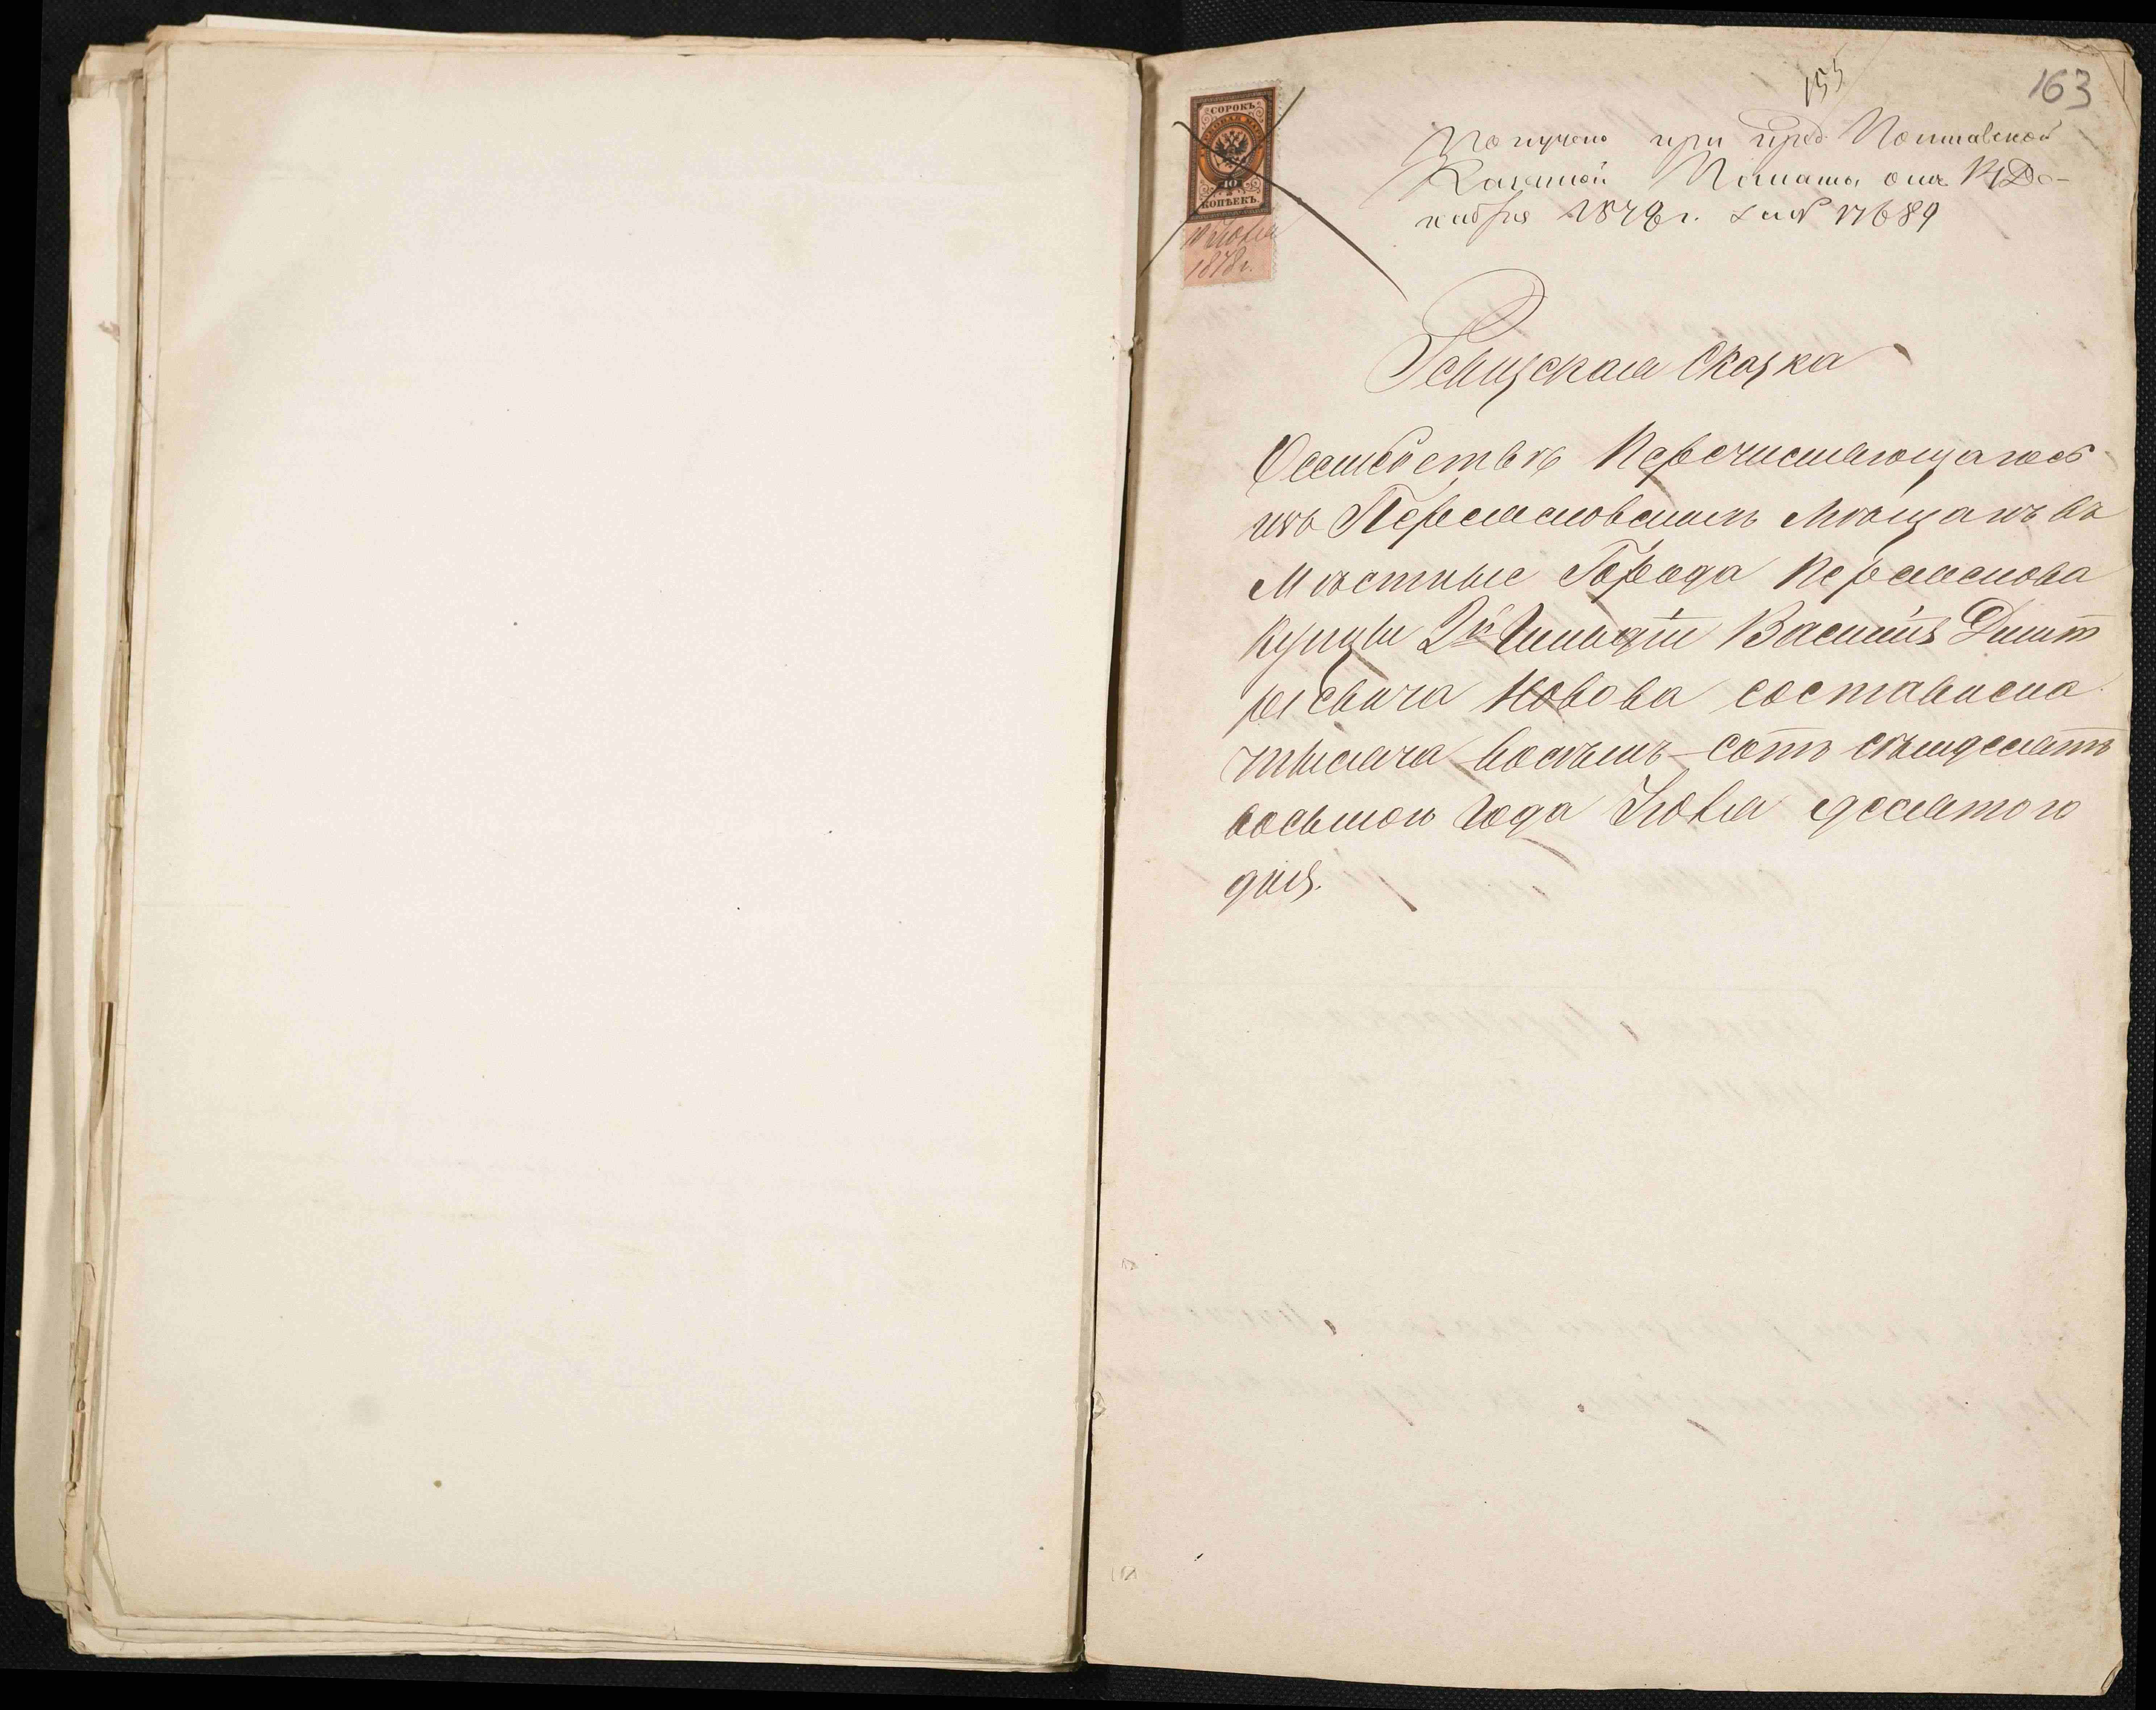 155
163
СОРОКЪ
40
КОПѢЕКЪ.
10 Іюля
1878 г.
Получено при пред. Полтавской
Казенной Палаты отъ 14 Де-
кабря 1878 г. за № 17689
Ревизская Сказка
О семействѣ Перечисляющагося
изъ Переяславскихъ Мѣщанъ въ
Мѣстные Города Переяслова
купцы 2й Гильдіи Василія Дмит
ріевича Новова составлена
тысяча восѣмь-сотъ сѣмдесятъ
восьмого года Іюля десятого
дня.